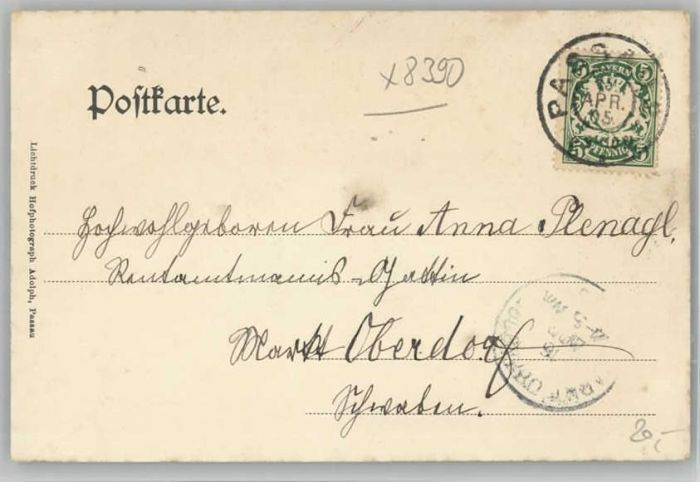 x8390
Postkarte.
PASSA
BAYERN
5 5
APR.
05.
5 PFENNIG 5
Hochwohlgeboren Frau Anna Plenagl,
Rentamtmanns-Gattin
Markt Oberdorf
Schwaben.
Lichtdruck Hofphotograph Adolph, Passau
20,-